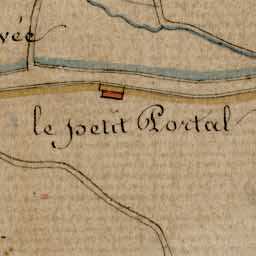 vée
le petit Portal